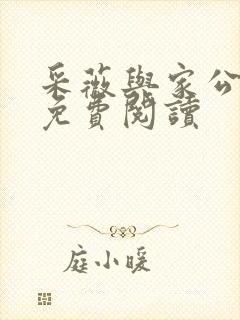 采薇與家公
免費閱讀
庭小暖